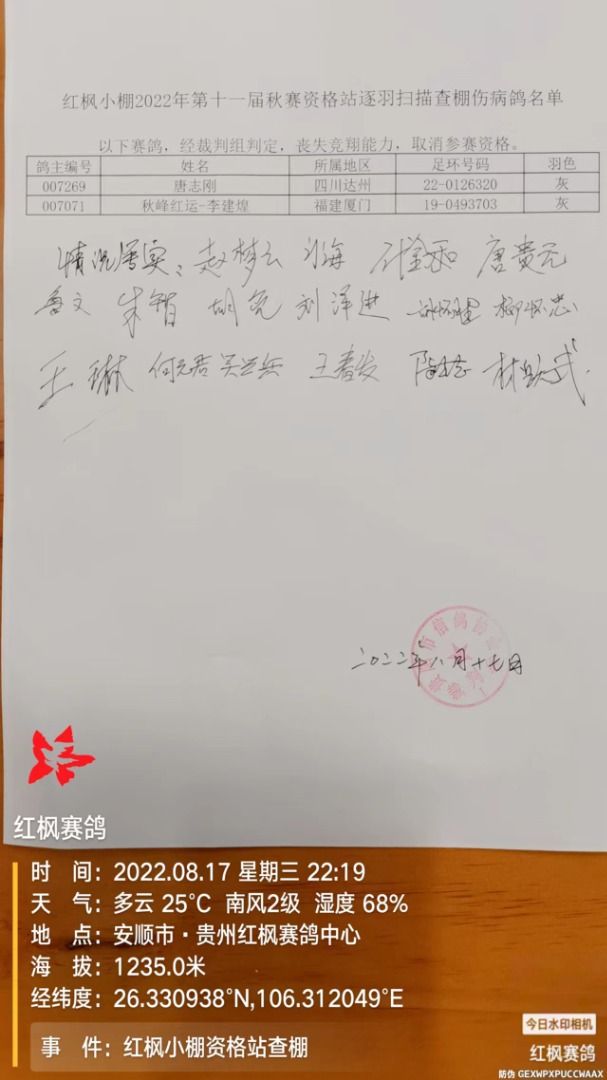 红枫小棚2022年第十一届秋赛资格站逐羽扫描查棚伤病鸽名单
以下赛鸽，经裁判组判定，丧失竞翔能力，取消参赛资格。
鸽主编号 姓名 所属地区 足环号码 羽色
007269 唐志刚 四川达州 22-0126320 灰
007071 秋峰红运-李建煌 福建厦门 19-0493703 灰
情况属实： 赵梦云 唐贵元
鲁文 朱智 胡亮 刘泽进 柳怀忠
王琳 何元君 王春发
市信鸽协
二〇二二年八月十七日
红枫赛鸽
时 间：2022.08.17 星期三 22:19
天 气：多云 25℃ 南风2级 湿度 68%
地 点：安顺市·贵州红枫赛鸽中心
海 拔：1235.0米
经纬度：26.330938°N,106.312049°E
事 件：红枫小棚资格站查棚
今日水印相机
红枫赛鸽
防伪 GEXWPXPUCCWAAX